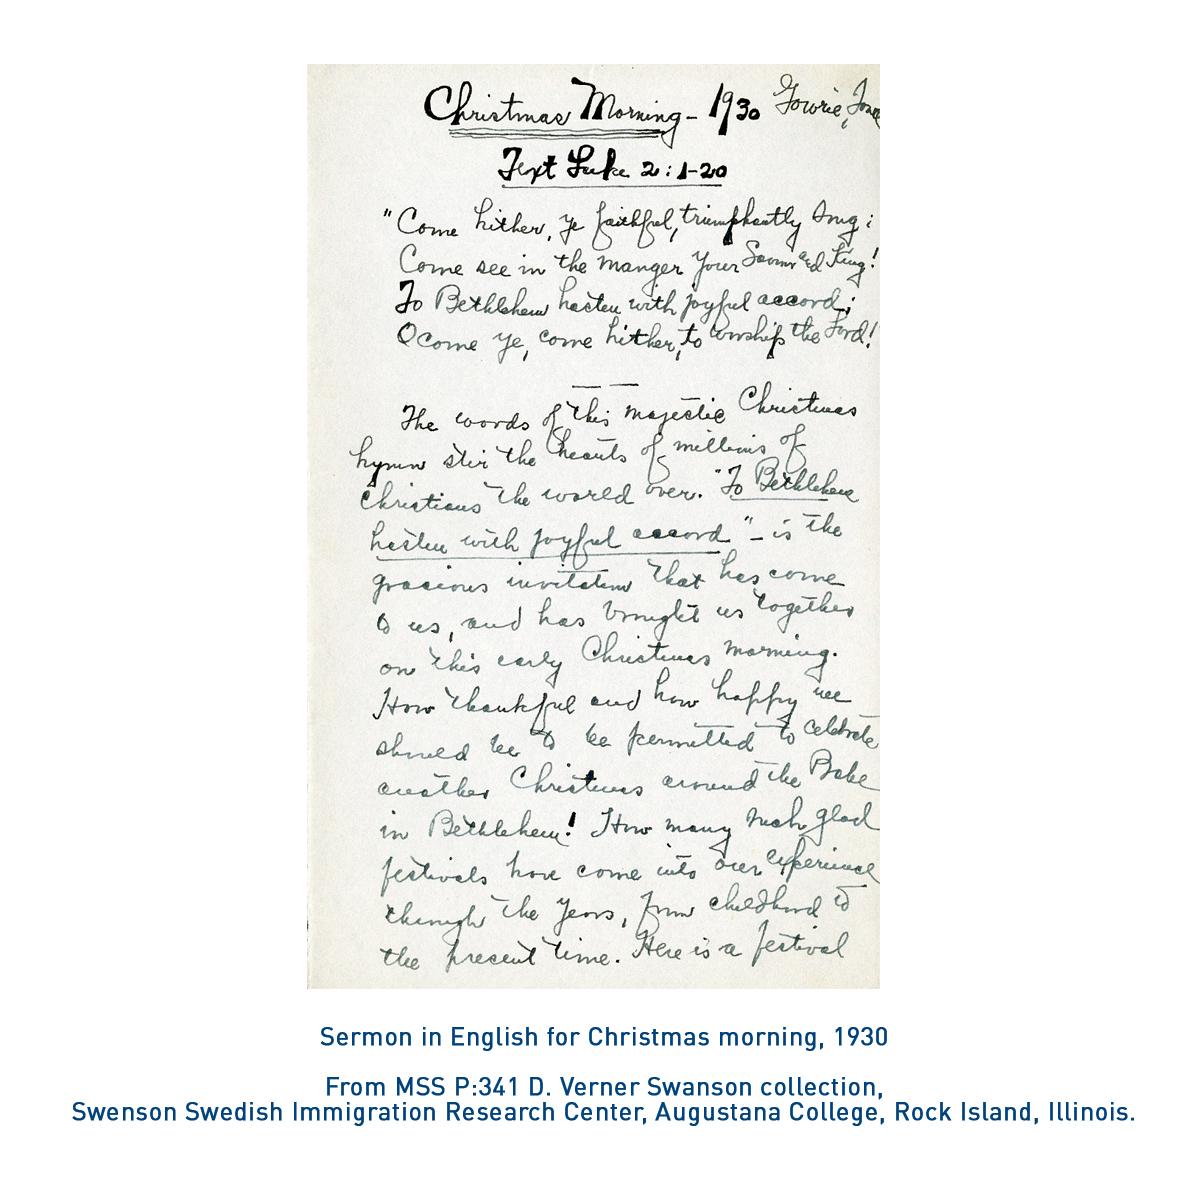 Christmas Morning - 1930 Gowrie, Iowa
Text Luke 2:1-20
"Come hither, ye faithful, triumphantly sing;
Come see in the manger your Savior and King!
To Bethlehem hasten with joyful accord;
O come ye, come hither, to worship the Lord!
The words of this majestic Christmas
hymn stir the hearts of millions of
Christians the world over. "To Bethlehem
hasten with joyful accord" - is the
gracious invitation that has come
to us, and has brought us together
on this early Christmas morning.
How thankful and how happy we
should be to be permitted to celebrate
another Christmas around the Babe
in Bethlehem! How many such glad
festivals have come into our experience
through the years, from childhood to
the present time. Here is a festival
Sermon in English for Christmas morning, 1930
From MSS P:341 D. Verner Swanson collection,
Swenson Swedish Immigration Research Center, Augustana College, Rock Island, Illinois.